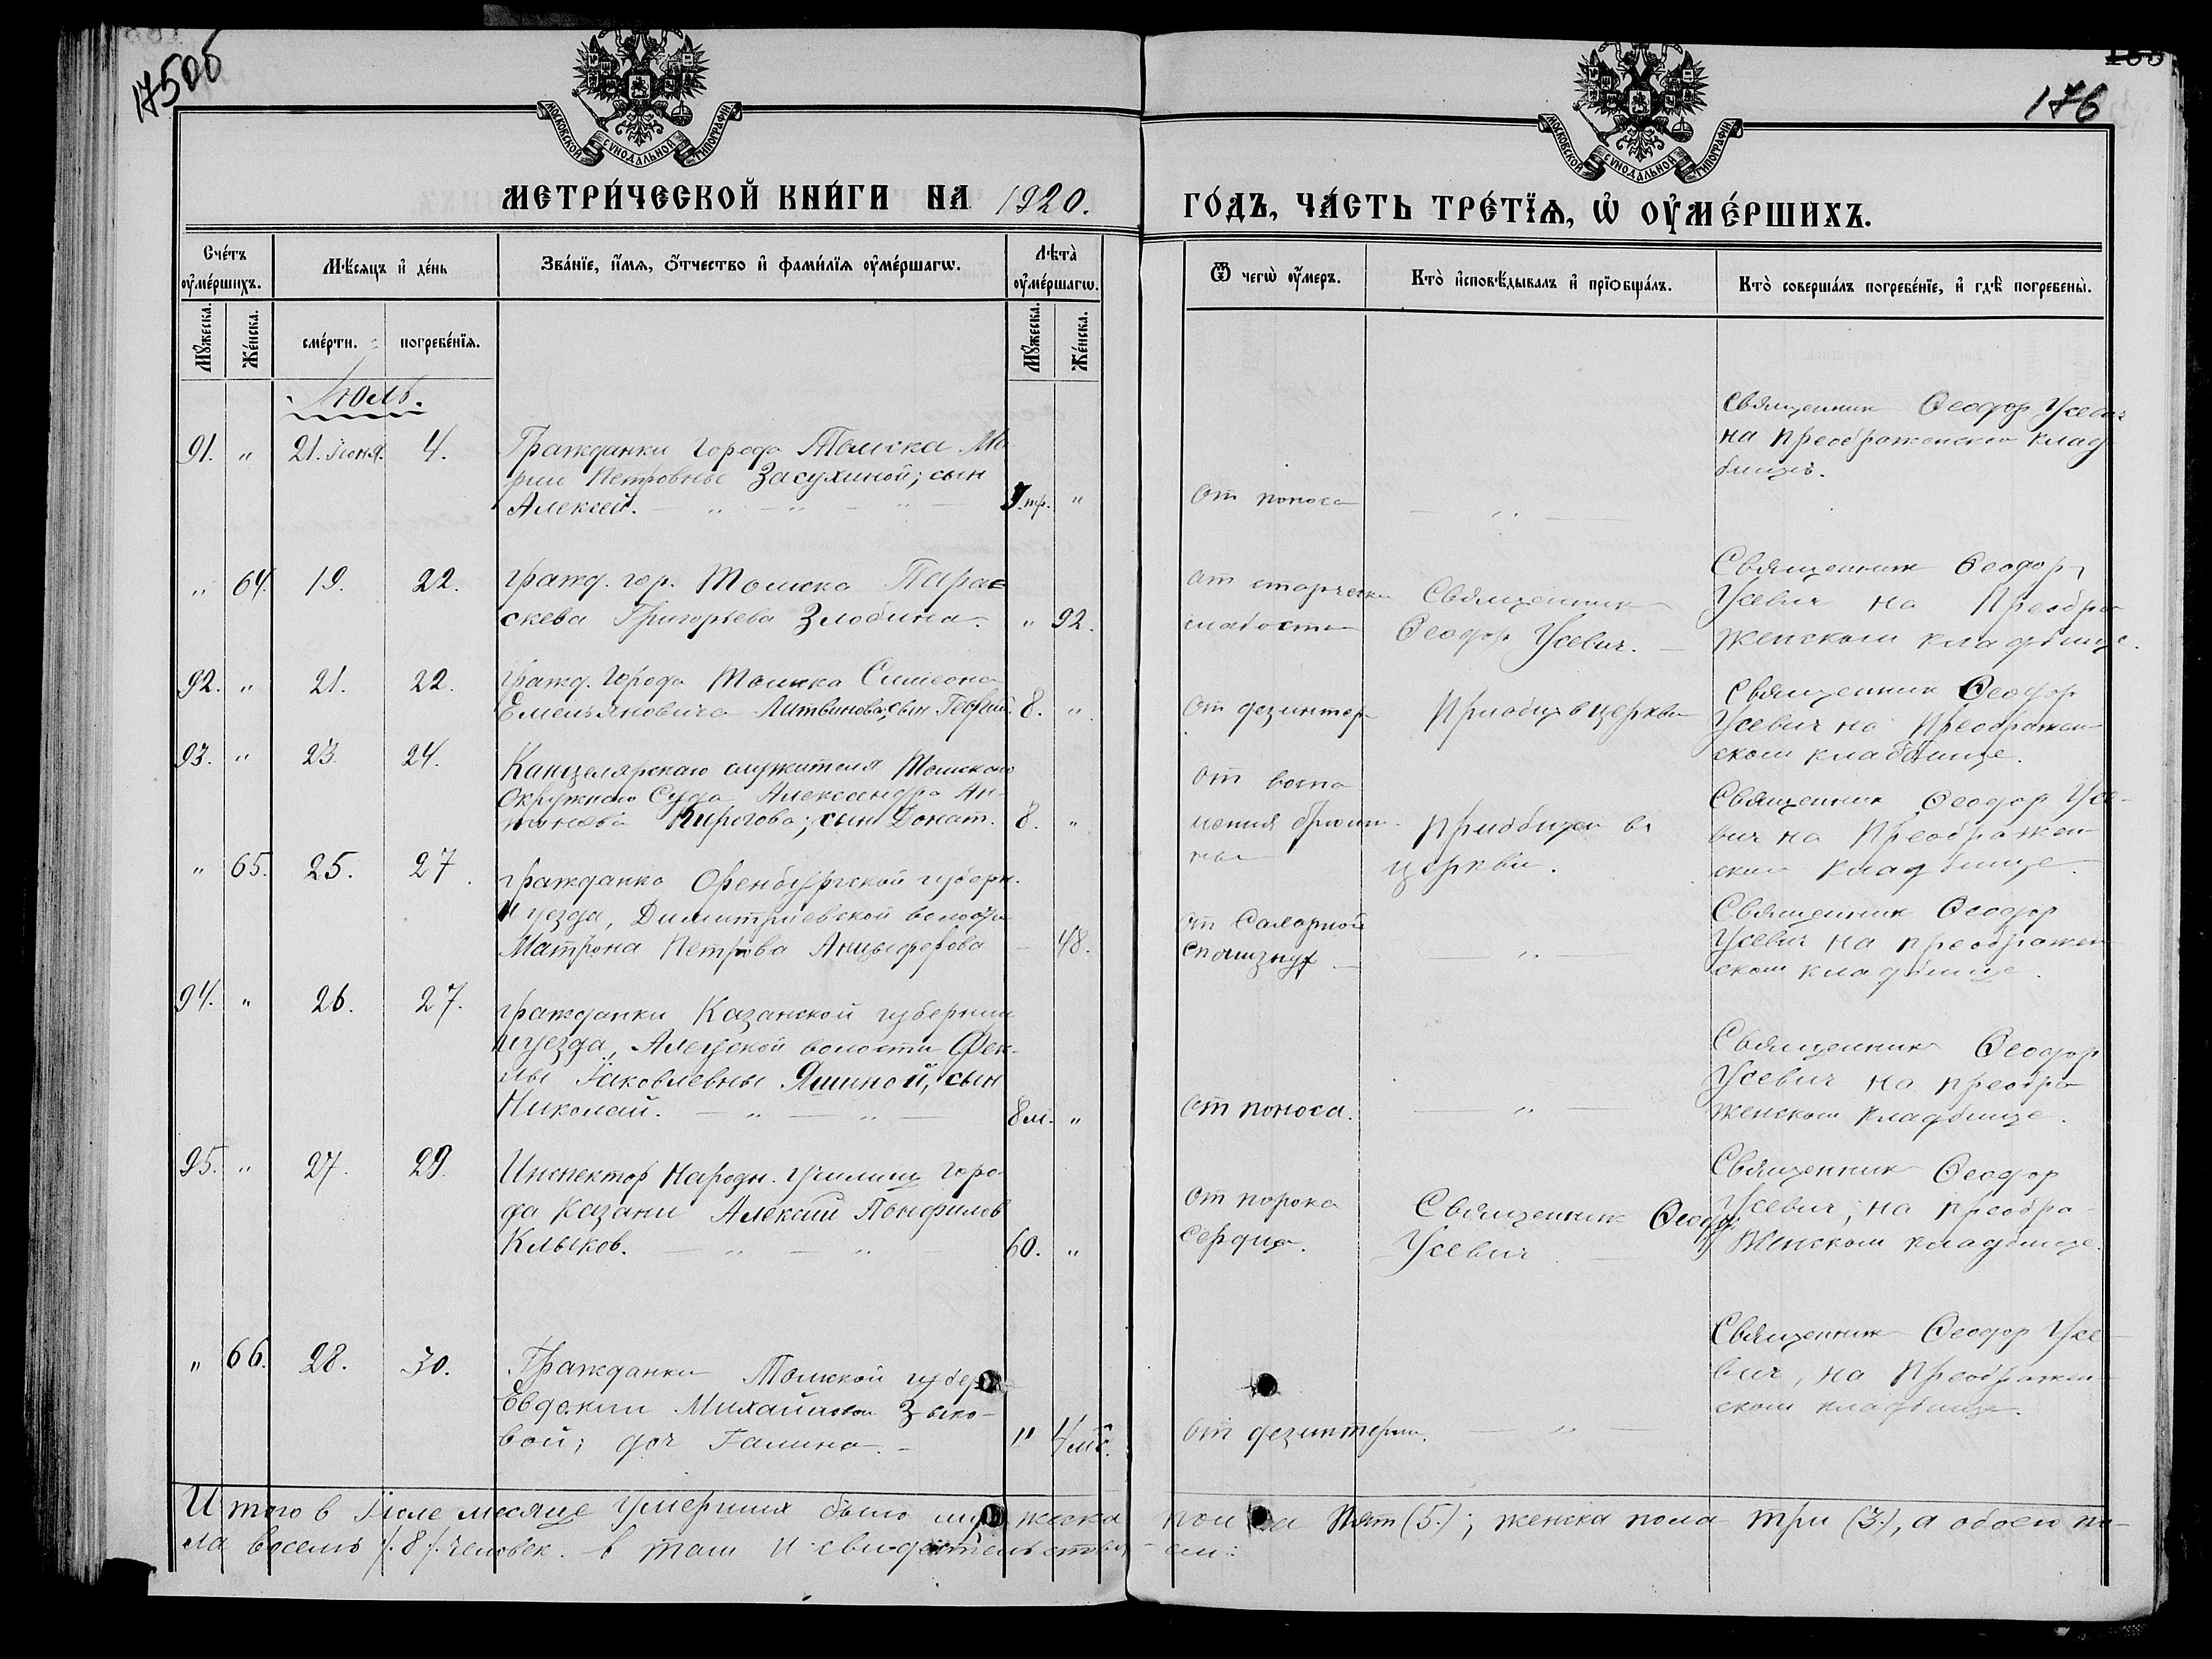 175об
176
МОСКОВСКОЙ СѴНОДАЛЬНОЙ ТИПОГРАФІИ
МОСКОВСКОЙ СѴНОДАЛЬНОЙ ТИПОГРАФІИ
МЕТРИ́ЧЕСКОЙ КНИ́ГИ НА 1920.
ГО́ДЪ, ЧА́СТЬ ТРЕ́ТЇѦ, Ѡ҆ ОУ҆МЕ́РШИХЪ.
Сче́тъ оу҆ме́ршихъ.
Мꙋ́жеска.
Же́нска.
Мѣ́сѧцъ и҆ де́нь
сме́рти.
погребе́нїѧ.
Зва́нїе, и҆́мѧ, ѻ҆́тчество и҆ фами́лїѧ оу҆ме́ршагѡ.
Лѣ́та оу҆ме́ршагѡ.
Мꙋ́жеска.
Же́нска.
Ѿ чегѡ̀ оу҆́меръ.
Кто̀ и҆сповѣ́дывалъ и҆ прїѻбща́лъ.
Кто̀ соверша́лъ погребе́нїе, и҆ гдѣ̀ погребены̀.
Июль.
91. " 21. Июня. 4.
Гражданки города Томска Ма
рии Петровны Засухиной; сын
Алексей. — " — " — " —
"
От поноса
— " —
Священник Феодор Усевич
на Преображенском клад
бище.
" 64. 19. 22.
гражд. гор. Томска Пара=
скева Григорьева Злобина.
" 92.
от старческ
слабости
Священник
Феодор Усевич. —
Священник Феодор
Усевич на Преобра
женском кладбище.
92. " 21. 22.
гражд. города Томска Симеона
Емельяновича Литвинова; сын Георгий.
8. "
От дезинтер
Приобщ в церкви
Священник Феодор
Усевич на Преображен
ском кладбище.
93. " 23. 24.
Канцелярскаго служителя Томскаго
Окружнаго Суда Александра Ан-
тонова Пирогова; сын Донат.
8. "
От воспа
ления брюши-
ны
Приобщен в
церкви.
Священник Феодор Усе-
вич на Преображен
ском кладбище.
" 65. 25. 27.
гражданка Оренбургской губерн.
и уезда, Димитриевской волости
Матрона Петрова Анцыферова
— 48.
От
— " —
Священник Феодор
Усевич на преображен
ском кладбище.
94. " 26. 27.
гражданки Казанской губернии
и уезда, волости Фек-
лы Иаковлевны Яшиной, сын
Николай. — " — " —
8 м. "
От поноса.
— " —
Священник Феодор
Усевич на преобра
женском кладбище.
95. " 27. 29.
Инспектор Народн. училищ горо
да Казани Алексий Панфилов
Клыков. — " — "
60. "
От порока
сердца.
Священник Феодор
Усевич —
Священник Феодор
Усевич, на преобра-
женском кладбище.
" 66. 28. 30.
Гражданки Томской губер
Евдокии Михайловой Зыко-
вой; доч Галина. —
" 4 мс.
от дезинтерии.
— " —
Священник Феодор Усе-
вич, на Преображен
ском кладбище.
Итого в Июле месяце умерших было мужеска пола пят (5.); женска пола три (3.), а обоего по-
ла восемь /. 8 /. человек. в том и свидетельствуем: